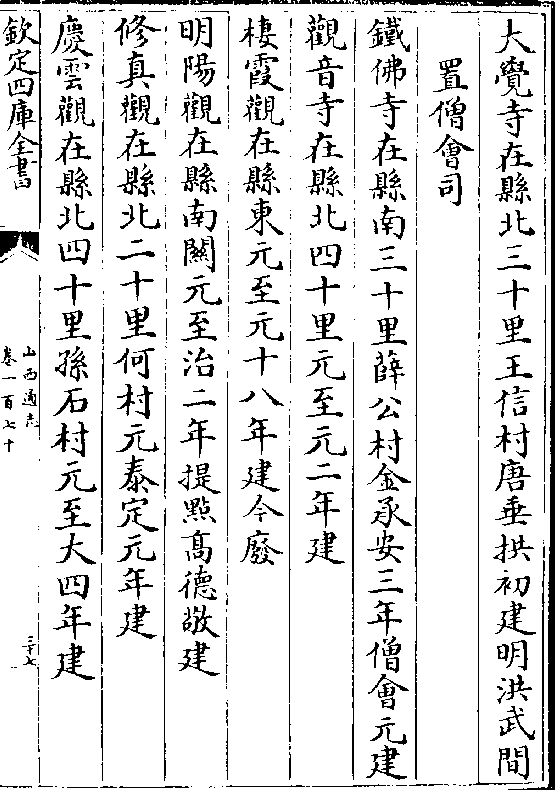 大覺寺在縣北三十里王信村唐垂拱初建明洪武間
置僧會司
鐵佛寺在縣南三十里薛公村金承安三年僧會元建
觀音寺在縣北四十里元至元二年建
棲霞觀在縣東元至元十八年建今廢
明陽觀在縣南關元至治二年提點高德敬建
修真觀在縣北二十里何村元泰定元年建
慶雲觀在縣北四十里孫石村元至大四年建
欽定四庫全書
山西通志
卷一百七十
三十七